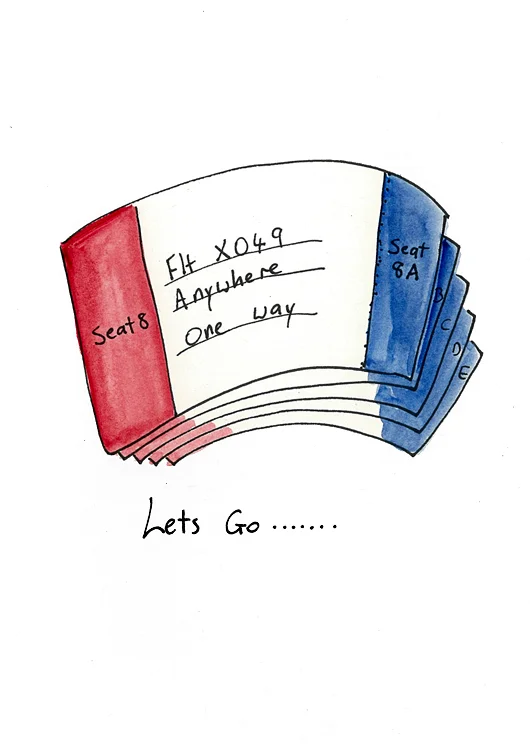 Flt XO49
Anywhere
One way
Seat 8
Seat
8A
B
C
D
E
Lets Go .......